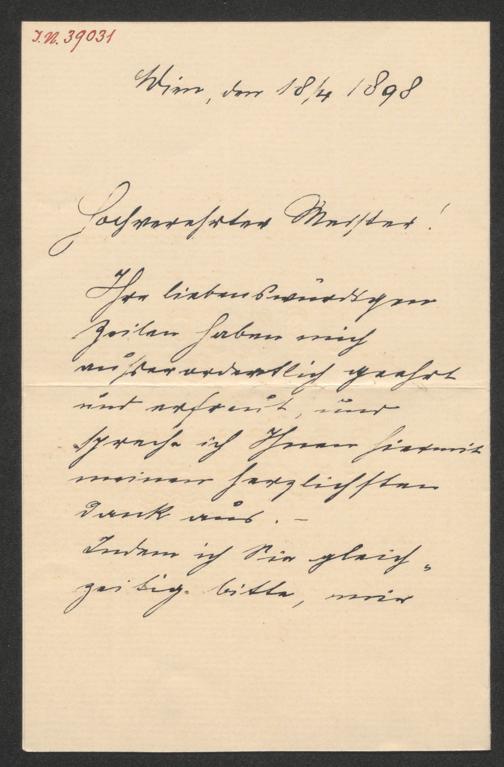 I.N. 39031
Wien, den 18/4 1898
Hochverehrter Meister!
Ihre liebenswürdigen
Zeilen haben mich
ausserordentlich geehrt
und erfreut, und
spreche ich Ihnen hiermit
meinen herzlichsten
Dank aus. –
Indem ich Sie gleich„
zeitig bitte, mir